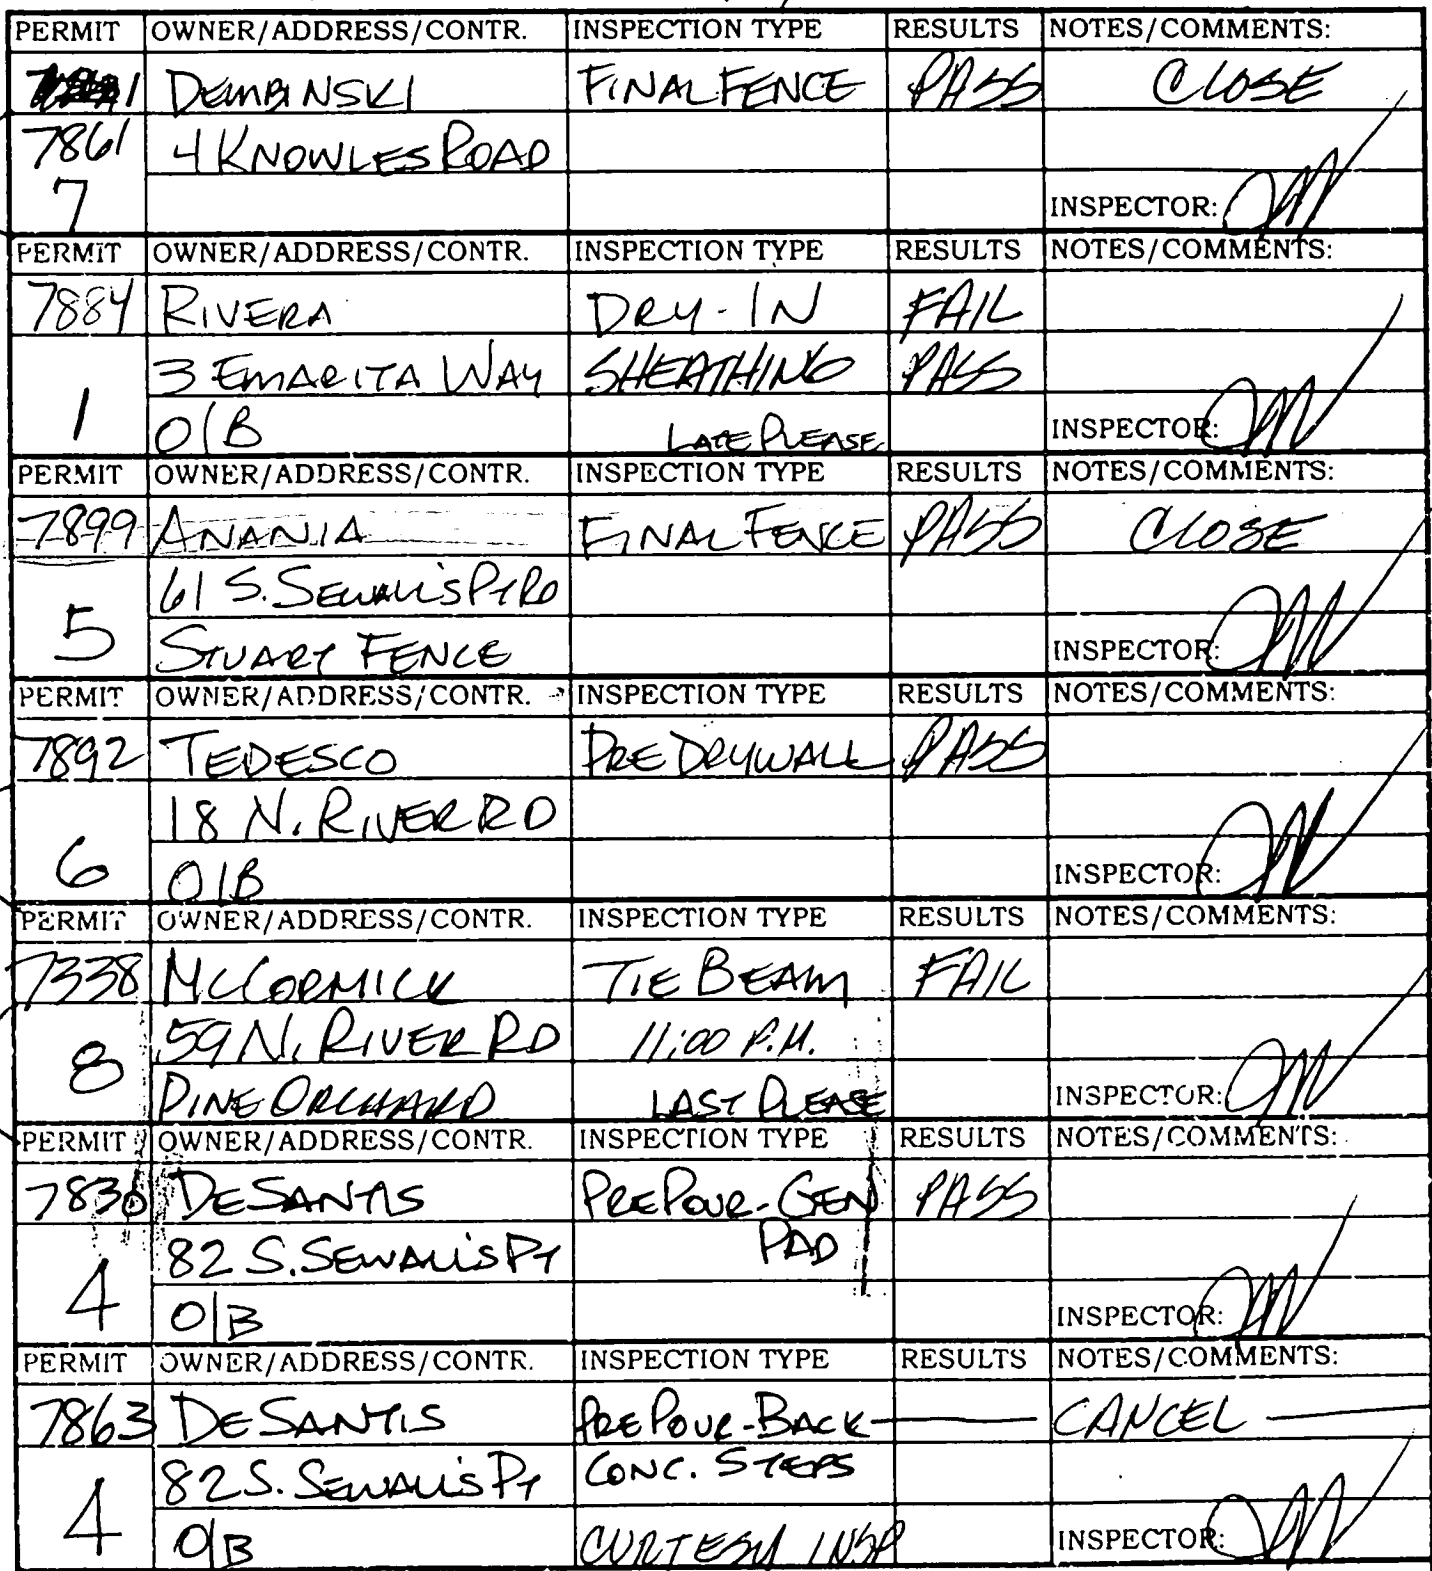 PERMIT OWNER/ADDRESS/CONTR. INSPECTION TYPE RESULTS NOTES/COMMENTS:
DEMBINSKI FINAL FENCE PASS CLOSE
7861 4 KNOWLES ROAD
7 INSPECTOR:
PERMIT OWNER/ADDRESS/CONTR. INSPECTION TYPE RESULTS NOTES/COMMENTS:
7884 RIVERA DRY-IN FAIL
3 EMARITA WAY SHEATHING PASS
1 O/B LATE PLEASE INSPECTOR:
PERMIT OWNER/ADDRESS/CONTR. INSPECTION TYPE RESULTS NOTES/COMMENTS:
7899 ANANIA FINAL FENCE PASS CLOSE
61 S. SEWALL'S PT RD
5 STUART FENCE INSPECTOR:
PERMIT OWNER/ADDRESS/CONTR. INSPECTION TYPE RESULTS NOTES/COMMENTS:
7892 TEDESCO PRE DRYWALL PASS
18 N. RIVER RD
6 O/B INSPECTOR:
PERMIT OWNER/ADDRESS/CONTR. INSPECTION TYPE RESULTS NOTES/COMMENTS:
7338 MCCORMICK TIE BEAM FAIL
8 59 N. RIVER RD 11:00 P.M.
PINE ORCHARD LAST PLEASE INSPECTOR:
PERMIT OWNER/ADDRESS/CONTR. INSPECTION TYPE RESULTS NOTES/COMMENTS:
7830 DESANTIS PREPOUR-GEN PASS
82 S. SEWALL'S PT PAD
4 O/B INSPECTOR:
PERMIT OWNER/ADDRESS/CONTR. INSPECTION TYPE RESULTS NOTES/COMMENTS:
7863 DESANTIS PREPOUR-BACK CANCEL
82 S. SEWALL'S PT CONC. STEPS
4 O/B CURTESY INSP INSPECTOR: